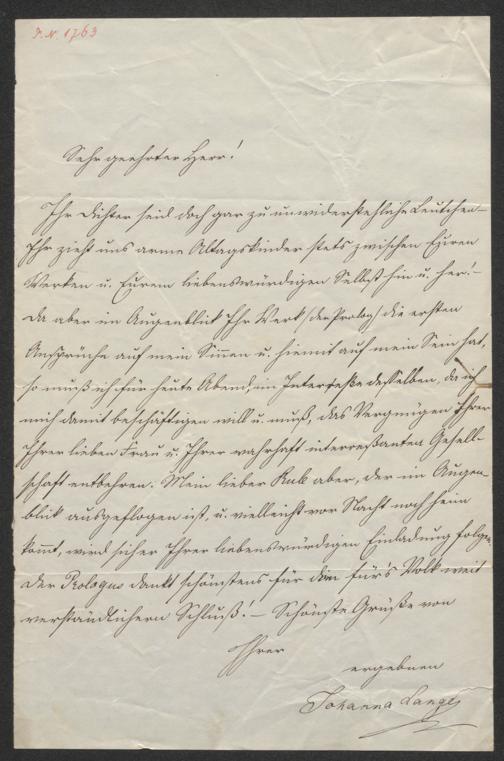 P. N. 1763
Sehr geehrter Herr!
Ihr Dichter seid doch gar zu unwiderstehliche Leutchen –
Ihr zieht uns arme Altagskinder stets zwischen Euren
Werken u. Eurem liebenswürdigen Selbst hin u. her! –
Da aber im Augenblick Ihr Werk (der Prolog) die ersten
Ansprüche auf mein Sinnen u. hiemit auf mein Sein hat,
so muß ich für heute Abend, im Interreße desselben, da ich
mich damit beschäftigen will u. muß, das Vergnügen Ihrer
Ihrer lieben Frau u. Ihrer wahrhaft interreßanten Gesell-
schaft entbehren. Mein lieber aber, der im Augen-
blick ausgeflogen ist, u. vielleicht vor Nacht noch heim
kommt, wird sicher Ihrer liebenswürdigen Einladung folgen.
Der Prologus dankt schönstens für den für's Volk weit
verständlichern Schluß! – Schönste Grüße von
Ihrer
ergebnen
Johanna Lange